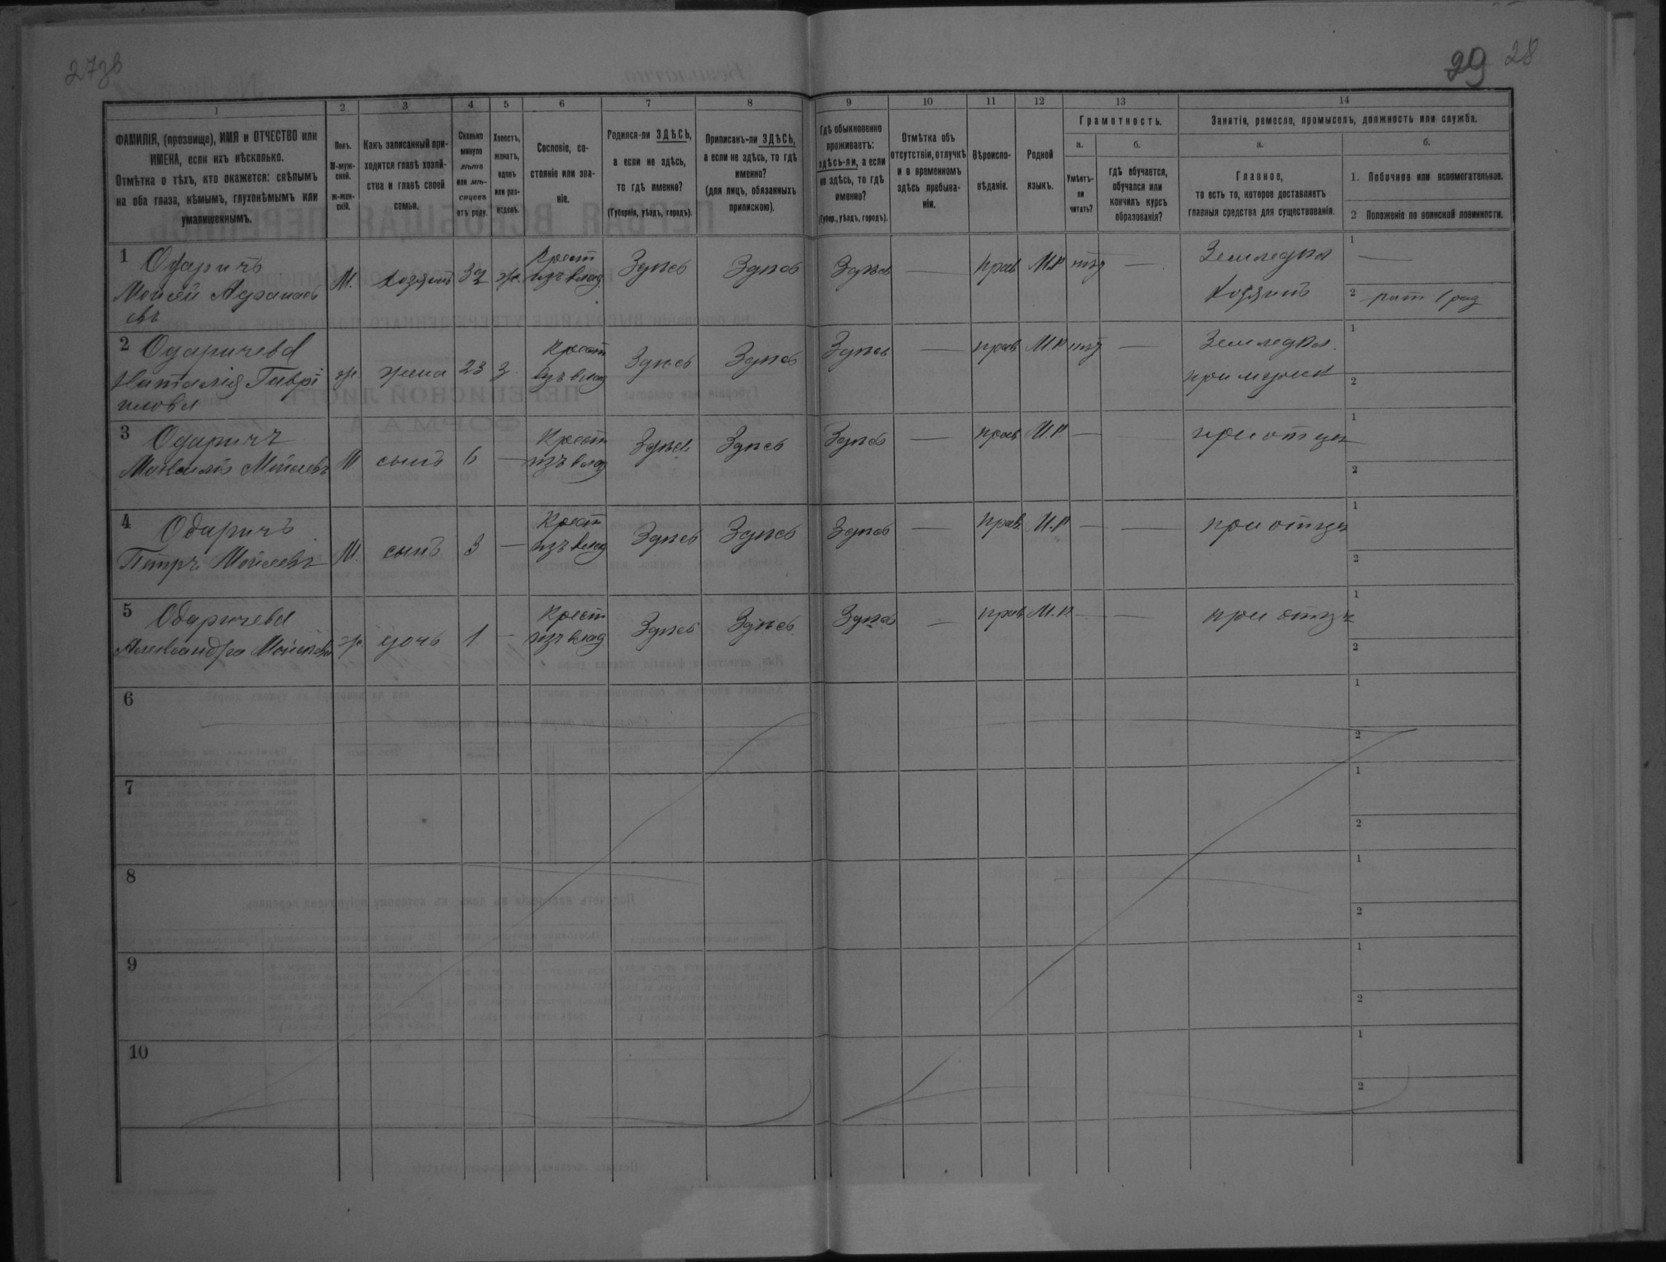 27зв
29 28
1
2
3
4
5
6
7
8
9
10
11
12
13
14
ФАМИЛІЯ, (прозвище), ИМЯ и ОТЧЕСТВО или
ИМЕНА, если ихъ нѣсколько.
Отмѣтка о тѣхъ, кто окажется: слѣпымъ
на оба глаза, нѣмымъ, глухонѣмымъ или
умалишеннымъ.
Полъ.
М-муж-
ской.
ж-жен-
скій.
Какъ записанный при-
ходится главѣ хозяй-
ства и главѣ своей
семьи.
Сколько
минуло
лѣтъ
или мѣ-
сяцевъ
отъ роду.
Холостъ,
женатъ,
вдовъ
или раз-
веденъ.
Сословіе, со-
стояніе или зва-
ніе.
Родился-ли ЗДѢСЬ,
а если не здѣсь,
то гдѣ именно?
(Губернія, уѣздъ, городъ).
Приписанъ-ли ЗДѢСЬ,
а если не здѣсь, то гдѣ
именно?
(для лицъ, обязанныхъ
припискою).
Гдѣ обыкновенно
проживаетъ:
здѣсь-ли, а если
не здѣсь, то гдѣ
именно?
(Губер., уѣздъ, городъ).
Отмѣтка объ
отсутствіи, отлучкѣ
и о временномъ
здѣсь пребыва-
ніи.
Вѣроиспо-
вѣданіе.
Родной
языкъ.
Грамотность.
а.
Умѣетъ-
ли
читать?
б.
гдѣ обучается,
обучался или
кончилъ курсъ
образованія?
Занятіе, ремесло, промыселъ, должность или служба.
а.
Главное,
то есть то, которое доставляетъ
главныя средства для существованія.
б.
1. Побочное или вспомогательное.
2 Положеніе по воинской повинности.
1 Одаричъ
Моисей Афанась
евъ
М. хозяинъ 32 ж. Крест изъ влад Здѣсь Здѣсь Здѣсь — прав М.Р нѣт —
Земледѣл
хозяинъ
1 —
2 рат 1 раз
2 Одаричева
Наталія Гаврі
илова
ж. жена 23 з. Крест изъ влад Здѣсь Здѣсь Здѣсь — прав М.Р нѣт —
Земледѣл.
при мужѣ
1
2
3 Одаричъ
Михаилъ Моисеевъ
М сынъ 6 — Крест изъ влад Здѣсь Здѣсь Здѣсь — прав М.Р — — при отцѣ
1
2
4 Одаричъ
Петръ Моисеевъ
М. сынъ 3 — Крест изъ влад Здѣсь Здѣсь Здѣсь — прав. М.Р — — при отцѣ
1
2
5 Одаричева
Александра Моисеева
ж. дочь 1 — Крест изъ влад Здѣсь Здѣсь Здѣсь — прав М.Р — — при отцѣ
1
2
6
1
2
7
1
2
8
1
2
9
1
2
10
1
2